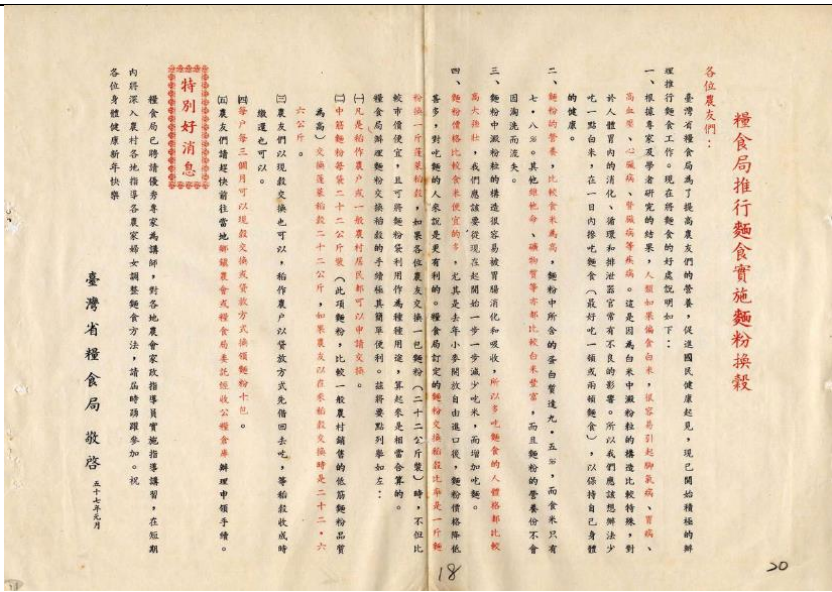 糧食局推行麵食實施麵粉換穀
各位農友們：
臺灣省糧食局為了提高農友們的營養，促進國民健康起見，現已開始積極的辦
理推行麵食工作。現在將麵食的好處說明如下：
一、根據專家及學者研究的結果，人類如果偏食白米，很容易引起腳氣病、胃病、
高血壓、心臟病、腎臟病等疾病。這是因為白米中澱粉粒的構造比較特殊，對
於人體胃內的消化、循環和排泄器官常有不良的影響。所以我們應該想辦法少
吃一點白米，在一日內摻吃麵食（最好吃一頓或兩頓麵食），以保持自己身體
的健康。
二、麵粉的營養，比較食米為高，麵粉中所含的蛋白質達九·五％，而食米只有
七·八％。其他維他命、礦物質等亦都比較白米豐富，而且麵粉的營養份不會
因淘洗而流失。
三、麵粉中澱粉粒的構造很容易被胃腸消化和吸收，所以多吃麵食的人體格都比較
高大強壯，我們應該要從現在起開始一步一步減少吃米，而增加吃麵。
四、麵粉價格比較食米便宜的多，尤其是去年小麥開放自由進口後，麵粉價格降低
甚多，對吃麵的人來說是更有利的。糧食局訂定的麵粉交換稻穀比率是一斤麵
粉換一斤蓬萊稻穀，如果各位農友交換一包麵粉（二十二公斤裝）時，不但比
較市價便宜，且可將麵粉袋利用作為種種用途，算起來是相當合算的。
糧食局辦理麵粉交換稻穀的手續極其簡單便利。茲將要點列舉如左：
㈠凡是稻作農戶或一般農村居民都可以申請交換。
㈡中筋麵粉每袋二十二公斤裝（此項麵粉，比較一般農村銷售的低筋麵粉品質
為高）交換蓬萊稻穀二十二公斤，如果農友以在來稻穀交換時是二十二·六
六公斤。
㈢農友們以現穀交換也可以，稻作農戶以貸放方式先借回去吃，等稻穀收成時
繳還也可以。
㈣每戶每三個月可以現穀交換或貸放方式換領麵粉十包。
㈤農友們請趕快前往當地鄉鎮農會或糧食局委託經收公糧倉庫辦理申領手續。
特別好消息
糧食局已聘請優秀專家為講師，對各地農會家政指導員實施指導講習，在短期
內將深入農村各地指導各農家婦女調整麵食方法，請屆時踴躍參加。祝
各位身體健康新年快樂
臺灣省糧食局 敬啓 五十七年元月
18
20